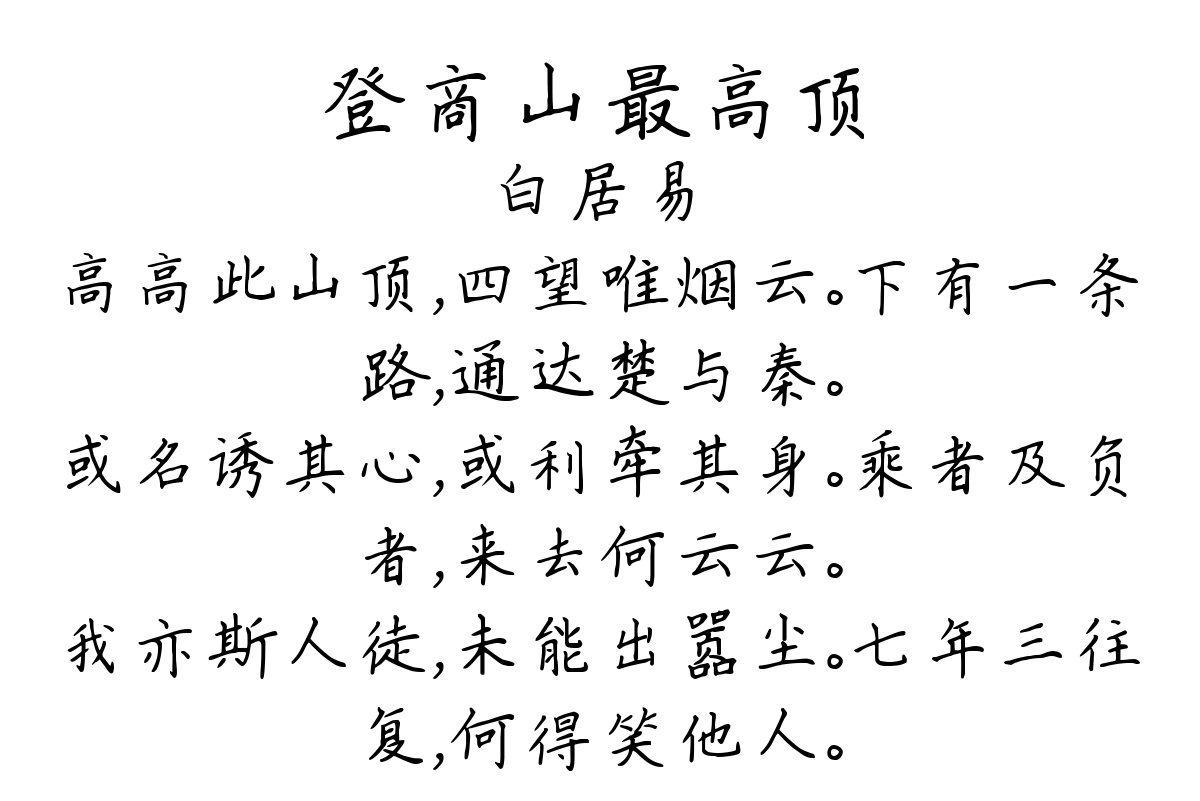 登商山最高顶
白居易
高高此山顶,四望唯烟云。下有一条
路,通达楚与秦。
或名诱其心,或利牵其身。乘者及负
者,来去何云云。
我亦斯人徒,未能出嚣尘。七年三往
复,何得笑他人。